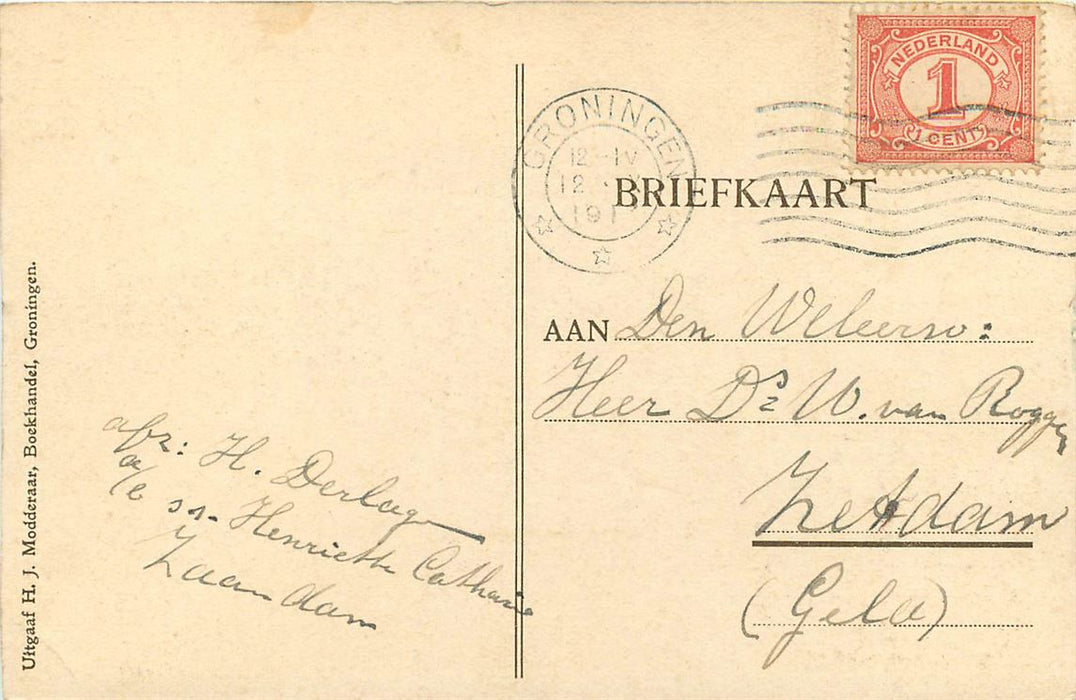 NEDERLAND
1
1 CENT
GRONINGEN
12-IV
12
191
BRIEFKAART
AAN Den Weleerw:
Heer Ds W. van Roggen
Zetdam
(Geld)
afz: H. Derlage
a/b ss. Henriette Catharie
Zaandam
Uitgaaf H. J. Modderaar, Boekhandel, Groningen.